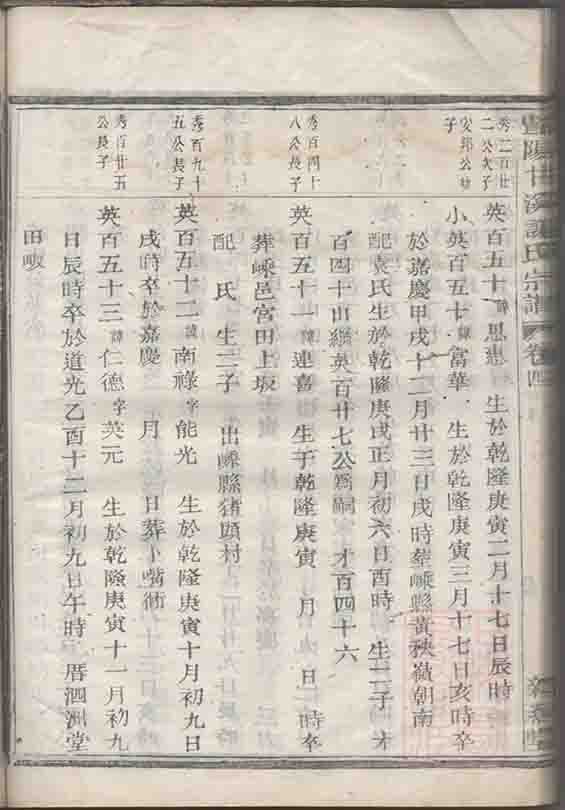 暨陽廿溪氏宗譜 卷四
秀二百廿
二公次子
英百五十 諱思惠 生於乾隆庚寅二月十七日辰時
安邦公幼
子
小英百五十 諱富華 生於乾隆庚寅三月十七日亥時卒
於嘉慶甲戌十二月廿三日戌時葬嵊縣黃秧嶺朝南
配袁氏生於乾隆庚戌正月初六日酉時 生二子 才
百四十出繼英百廿七公為嗣 才百四十六
秀百四十
八公長子
英百五十一 諱連喜 生于乾隆庚寅 月 日 時卒
葬嵊邑宮田上坂
配 氏 生二子 出嵊縣豬頭村
秀百九十
五公長子
英百五十二 諱南祿 字能光 生於乾隆庚寅十月初九日
戌時卒於嘉慶 月 日葬小嘴衕
秀百廿五
公長子
英百五十三 諱仁德 字英元 生於乾隆庚寅十一月初九
日辰時卒於道光乙酉十二月初九日午時 厝泗洲堂
田畈